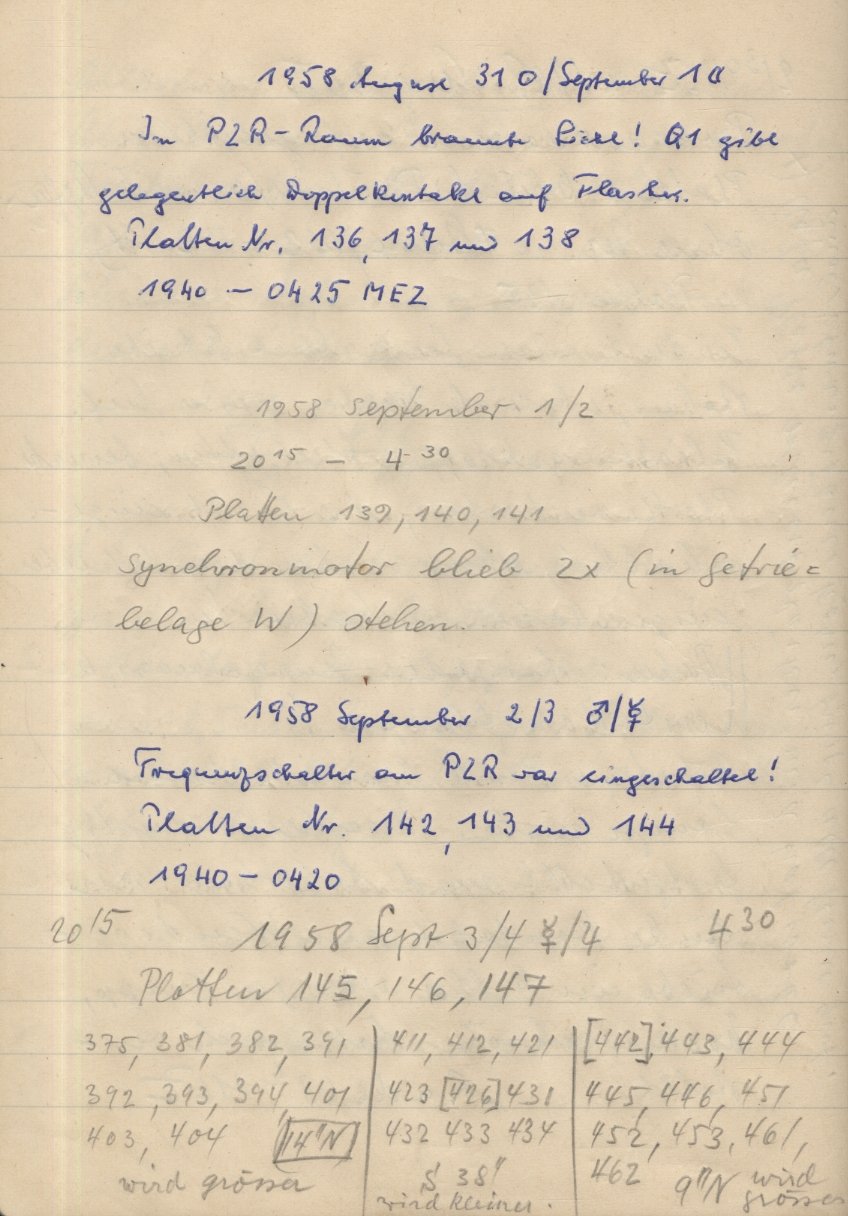 1958 August 31 ☉/September 1 ☾
Im PZR-Raum brannte Licht! Q1 gibt
gelegentlich Doppelkontakt auf Flasher.
Platten Nr. 136, 137 und 138
1940 – 0425 MEZ
1958 September 1/2
20 15 – 4 30
Platten 139, 140, 141
Synchronmotor blieb 2x (in Getrie=
belage W) stehen.
1958 September 2/3 ♂/☿
Frequenzschalter am PZR war eingeschaltet!
Platten Nr. 142, 143 und 144
1940 – 0420
20 15 1958 Sept 3/4 ☿/♃ 4 30
Platten 145, 146, 147
375, 381, 382, 391 | 411, 412, 421 | [442], 443, 444
392, 393, 394, 401 | 423 [426] 431 | 445, 446, 451
403, 404 14"N | 432 433 434 | 452, 453, 461,
wird grösser | S 38" | 462 9"N wird
wird kleiner. grösser